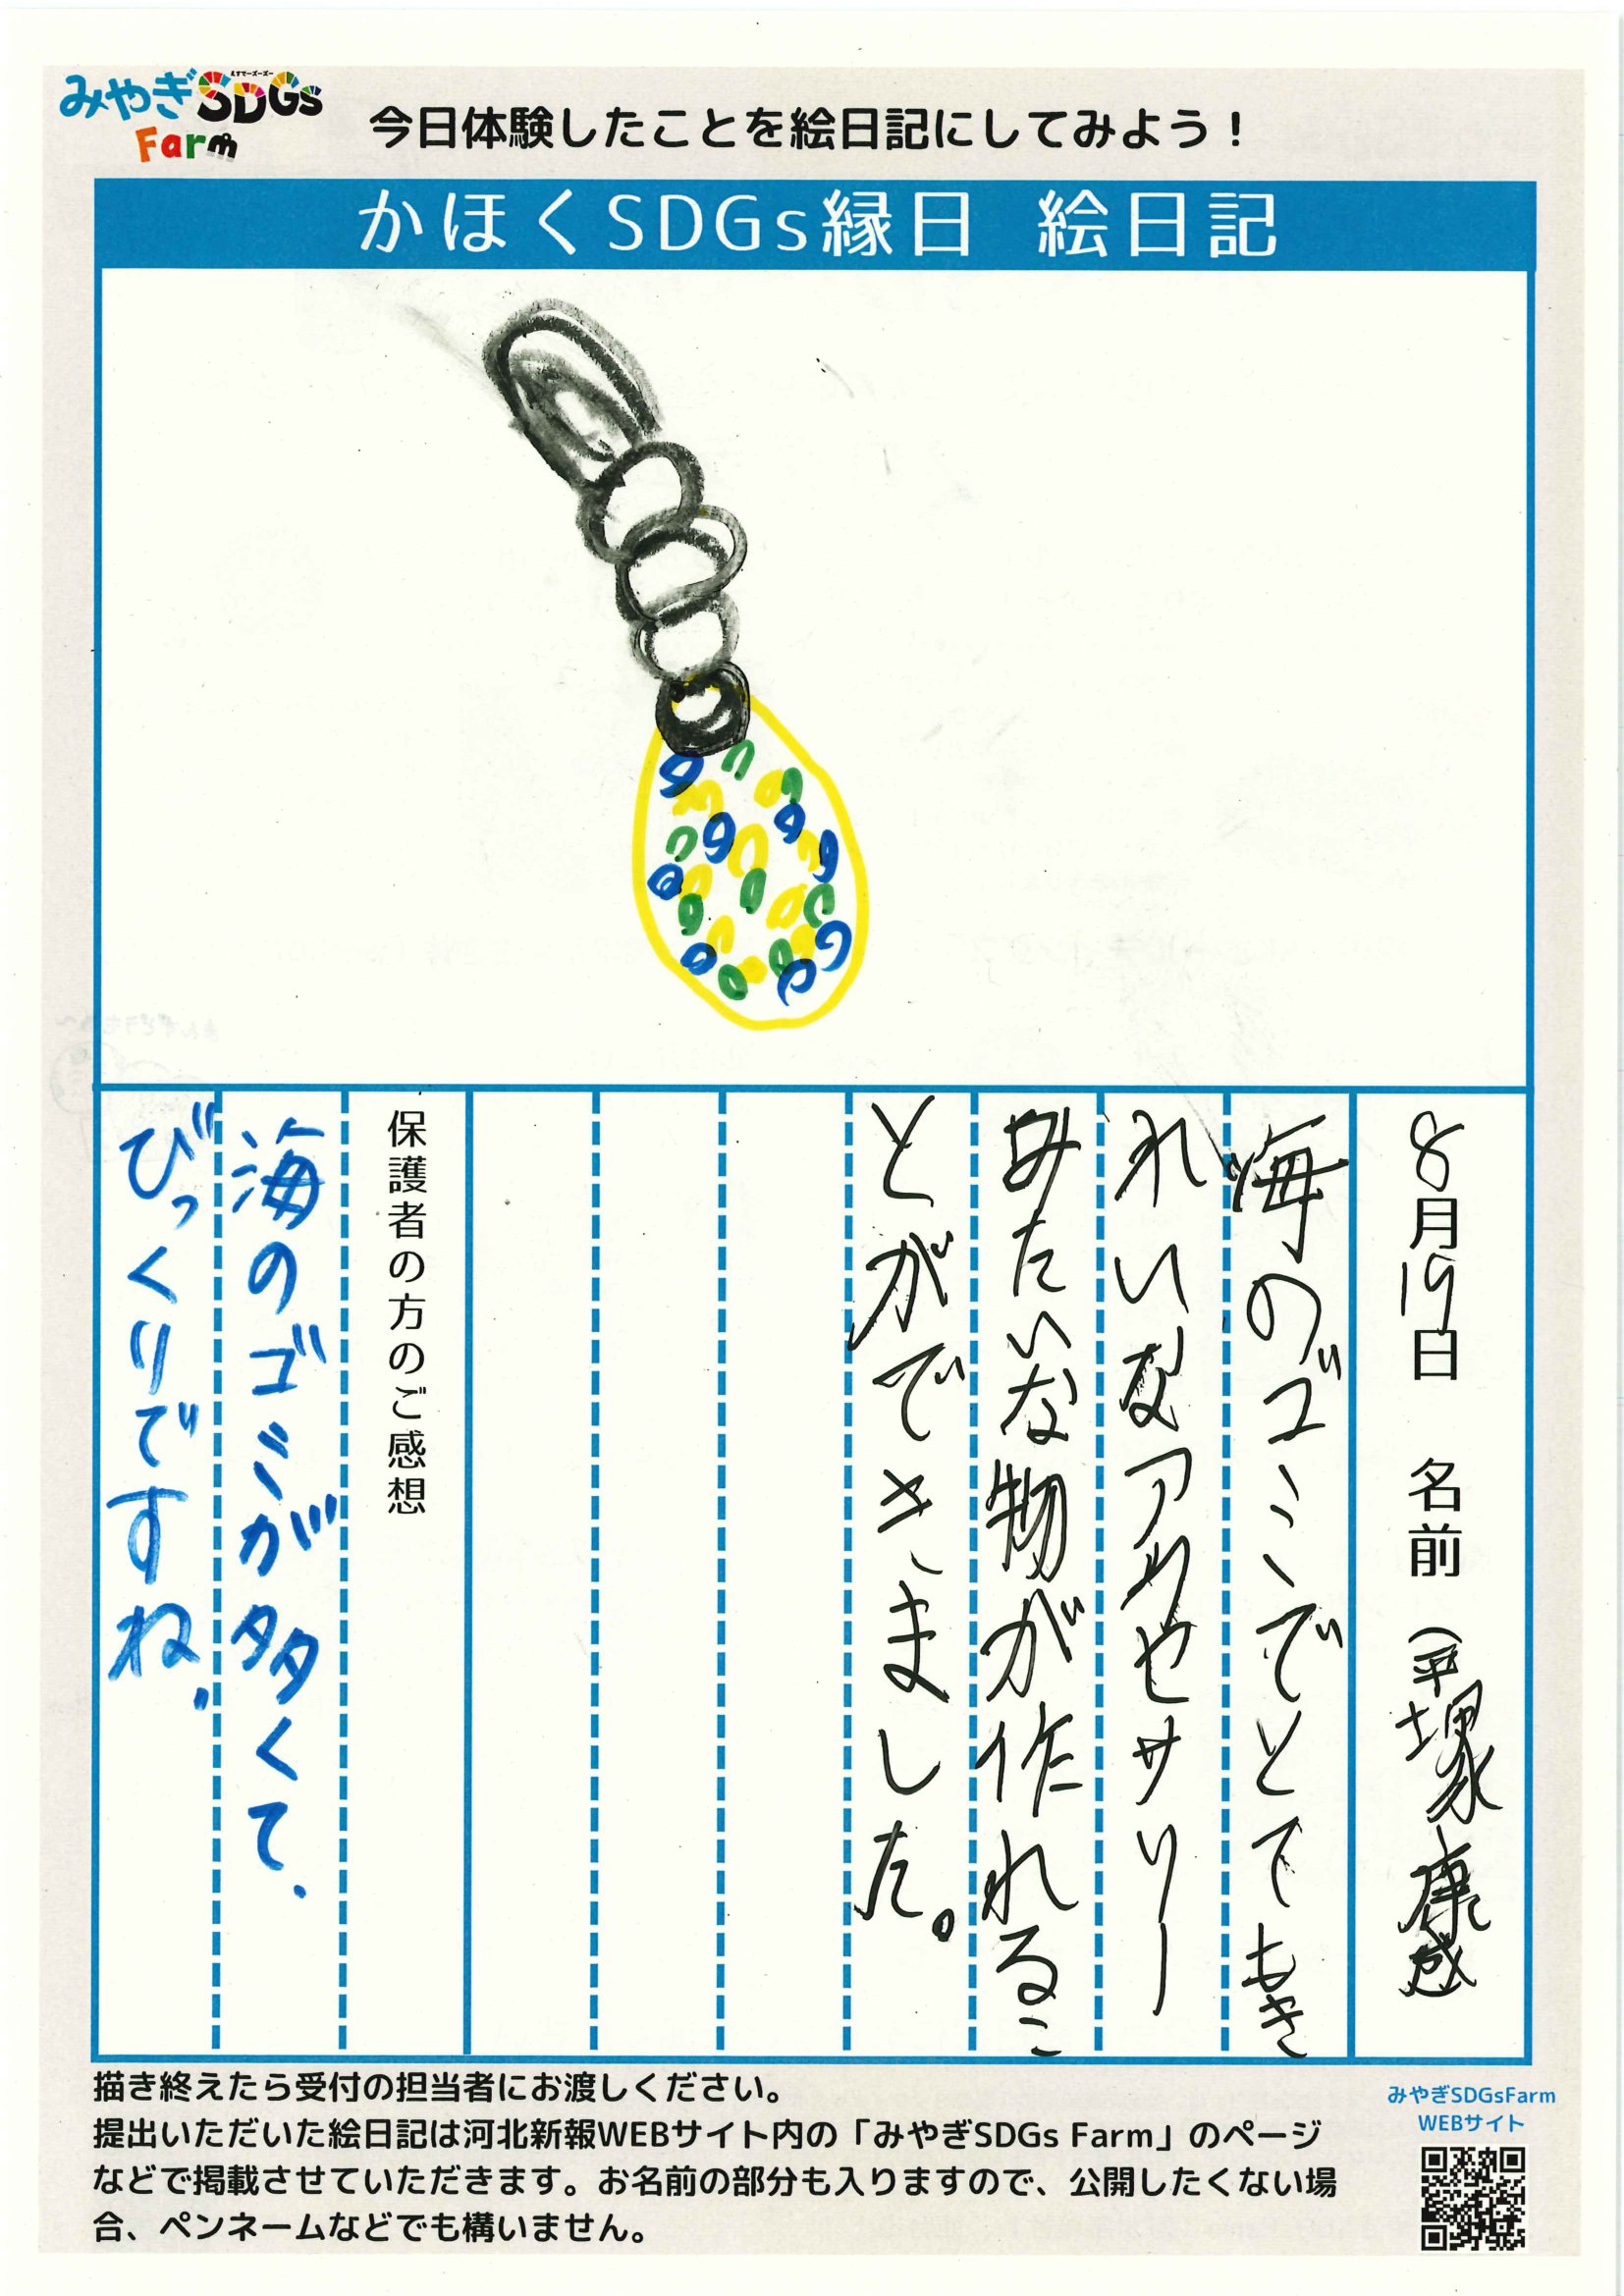 みやぎSDGs
えすでーじーず
Farm
今日体験したことを絵日記にしてみよう！
かほくSDGs縁日 絵日記
8月19日 名前（平塚康盛
海のゴミでとてもき
れいなアクセサリー
みたいな物が作れるこ
とができました。
保護者の方のご感想
海のゴミが多くて、
びっくりですね。
描き終えたら受付の担当者にお渡しください。
提出いただいた絵日記は河北新報WEBサイト内の「みやぎSDGs Farm」のページ
などで掲載させていただきます。お名前の部分も入りますので、公開したくない場
合、ペンネームなどでも構いません。
みやぎSDGsFarm
WEBサイト